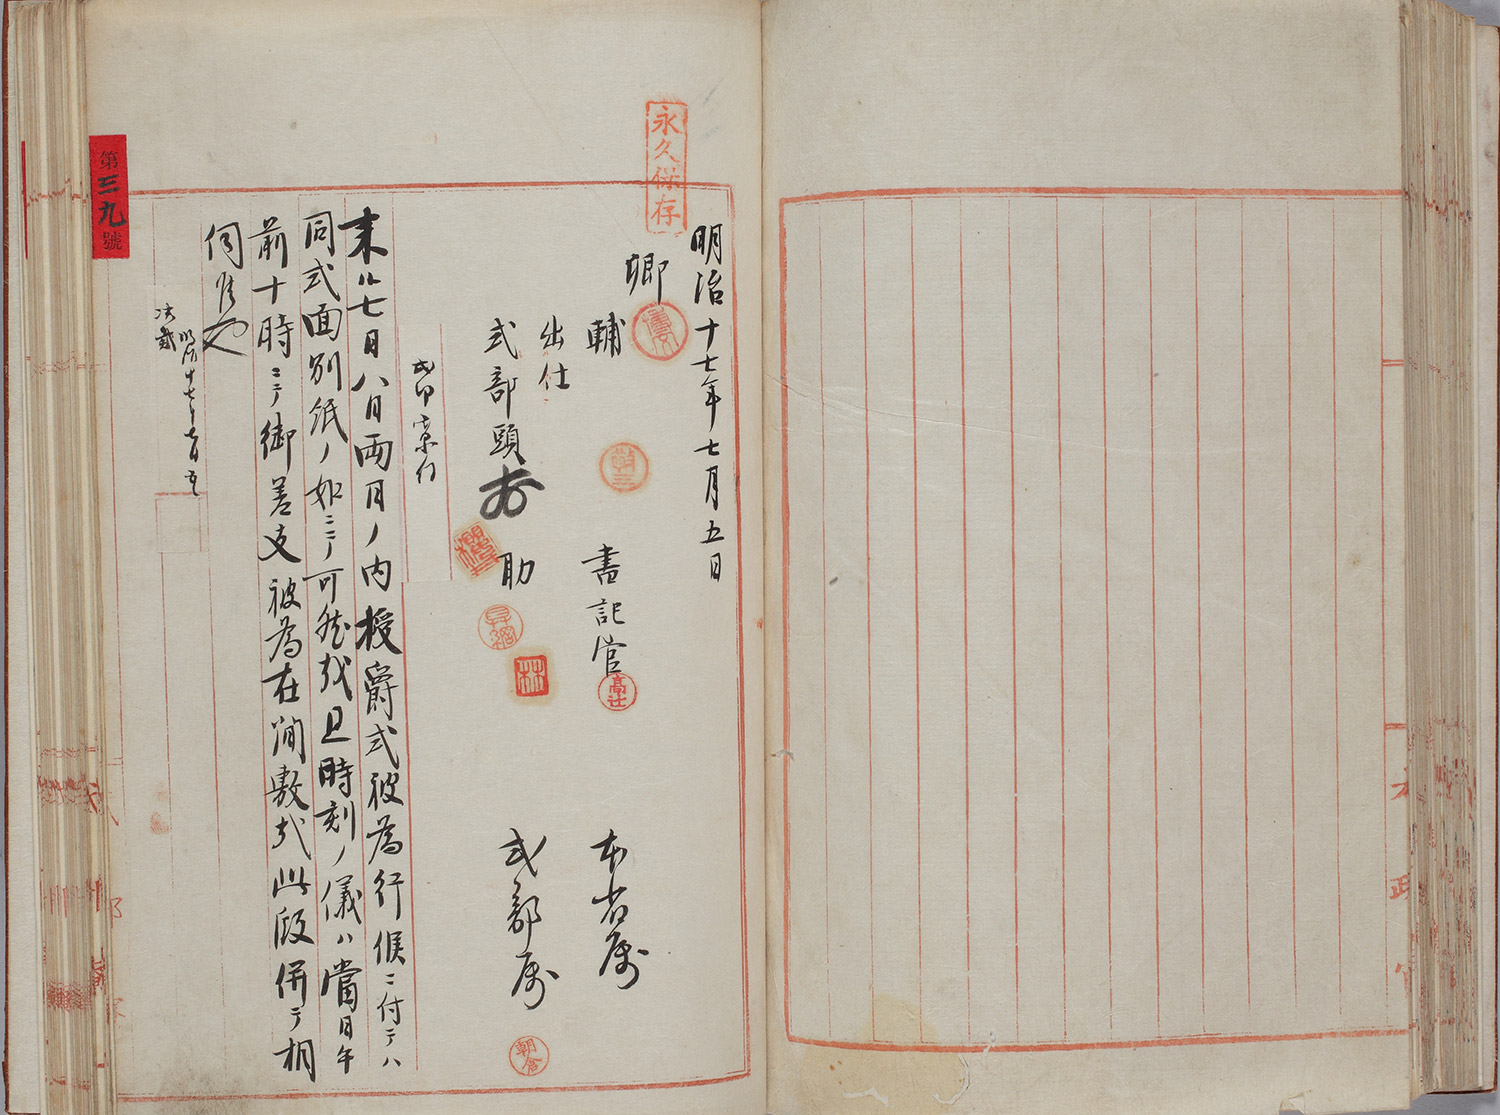 永久保存
明治十七年七月五日
卿
輔
書記官
本省属
出仕
式部頭
助
式部属
高辻
林
朝倉
来ル七日八日両日ノ内授爵式被為行候ニ付テハ
同式面別紙ノ如ニテ可然哉且時刻ノ儀ハ當日午
前十時ニテ御差支被為在間敷哉此段併テ相
伺候也
明治十七年七月五日
決裁
第三九號